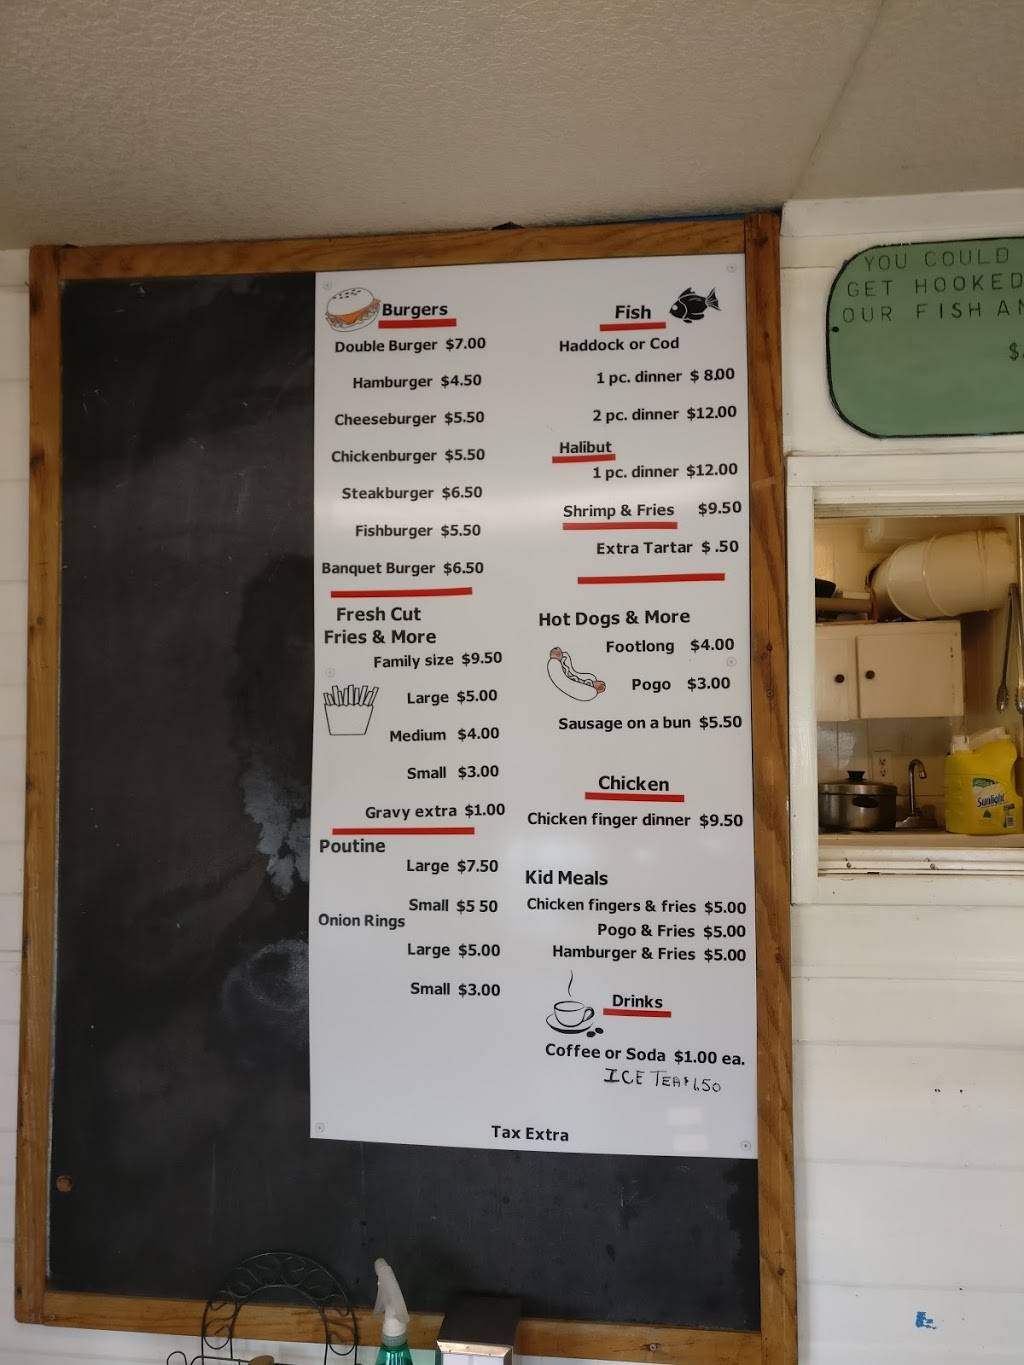 Burgers
Double Burger $7.00
Hamburger $4.50
Cheeseburger $5.50
Chickenburger $5.50
Steakburger $6.50
Fishburger $5.50
Banquet Burger $6.50
Fresh Cut
Fries & More
Family size $9.50
Large $5.00
Medium $4.00
Small $3.00
Gravy extra $1.00
Poutine
Large $7.50
Small $5 50
Onion Rings
Large $5.00
Small $3.00
Fish
Haddock or Cod
1 pc. dinner $ 8.00
2 pc. dinner $12.00
Halibut
1 pc. dinner $12.00
Shrimp & Fries $9.50
Extra Tartar $ .50
Hot Dogs & More
Footlong $4.00
Pogo $3.00
Sausage on a bun $5.50
Chicken
Chicken finger dinner $9.50
Kid Meals
Chicken fingers & fries $5.00
Pogo & Fries $5.00
Hamburger & Fries $5.00
Drinks
Coffee or Soda $1.00 ea.
ICE TEA $1.50
Tax Extra
YOU COULD
GET HOOKED
OUR FISH
$
Sunlight